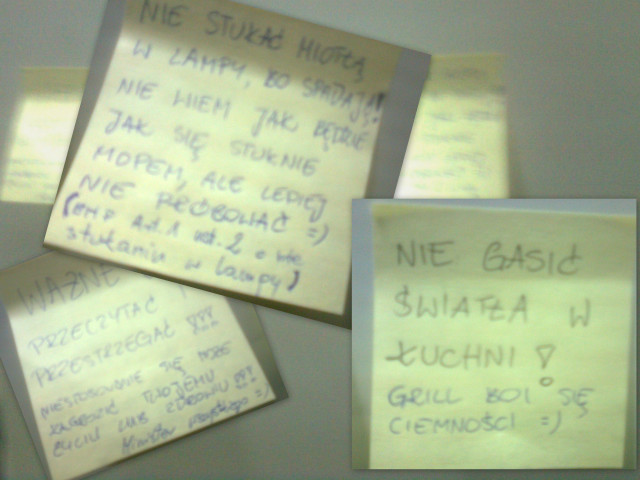 NIE STUKAĆ MIOTŁĄ
W LAMPY, BO SPADAJĄ!
NIE WIEM JAK BĘDZIE
JAK SIĘ STUKNIE
MOPEM, ALE LEPIEJ
NIE PRÓBOWAĆ =)
stukaniu w lampy)
WAŻNE
PRZECZYTAĆ I
PRZESTRZEGAĆ !!!
NIESTOSOWANIE SIĘ MOŻE
ZAGROZIĆ TWOJEMU
ŻYCIU LUB ZDROWIU !!!
NIE GASIĆ
ŚWIATŁA W
KUCHNI !
GRILL BOI SIĘ
CIEMNOŚCI =)